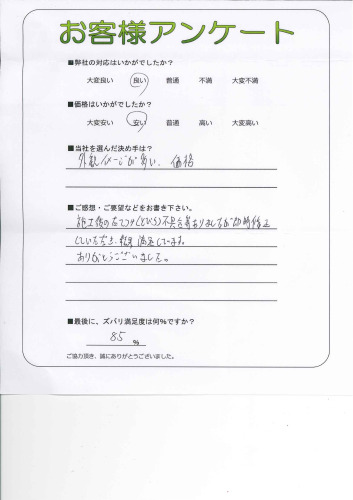 お客様アンケート
■弊社の対応はいかがでしたか？
大変良い 良い 普通 不満 大変不満
■価格はいかがでしたか？
大変安い 安い 普通 高い 大変高い
■当社を選んだ決め手は？
外観イメージが多い、価格
■ご感想・ご要望などをお書き下さい。
施工後の 不具合等ありましたが 修正
していただき、結果満足しています。
ありがとうございました。
■最後に、ズバリ満足度は何%ですか？
85 %
ご協力頂き、誠にありがとうございました。